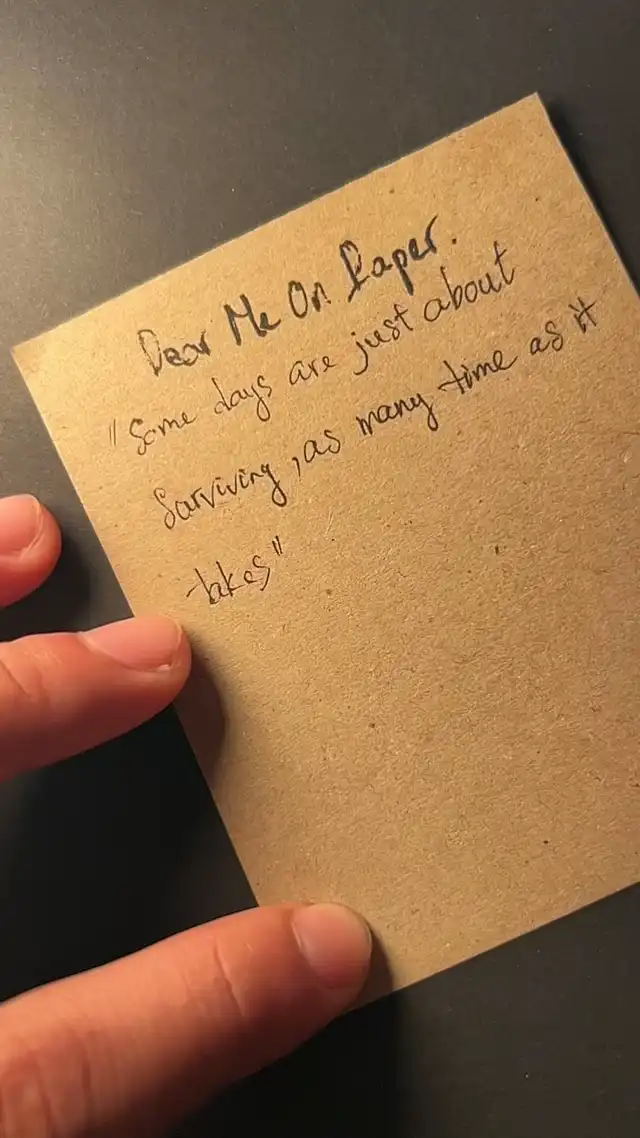 Dear Me On Paper.
"Some days are just about
Surviving, as many time as it
takes"